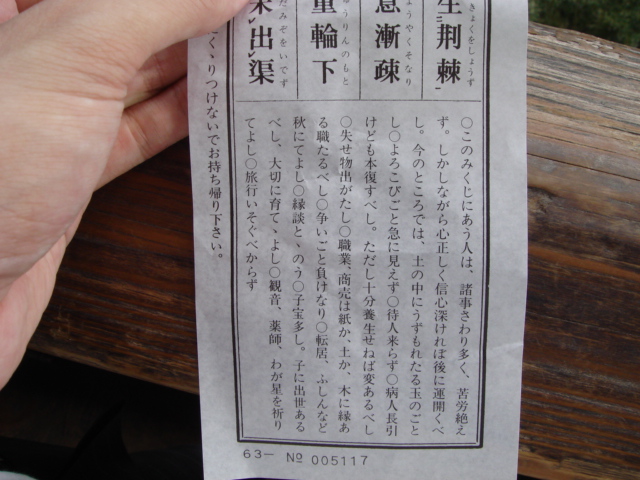 生荆棘
きょくをしょうず
意漸疎
ようやくそなり
重輪下
ゅうりんのもと
出渠
みぞをいでず
○このみくじにあう人は、諸事さわり多く、苦労絶え
ず。しかしながら心正しく信心深ければ後に運開くべ
し。今のところでは、土の中にうずもれたる玉のごと
し○よろこびごと急に見えず○待人来らず○病人長引
けども本復すべし。ただし十分養生せねば変あるべし
○失せ物出がたし○職業、商売は紙か、土か、木に縁あ
る職たるべし○争いごと負けなり○転居、ふしんなど
秋にてよし○縁談とゝのう○子宝多し。子に出世ある
べし、大切に育てゝよし○観音、薬師、わが星を祈り
てよし○旅行いそぐべからず
くゝりつけないでお持ち帰り下さい。
63— № 005117